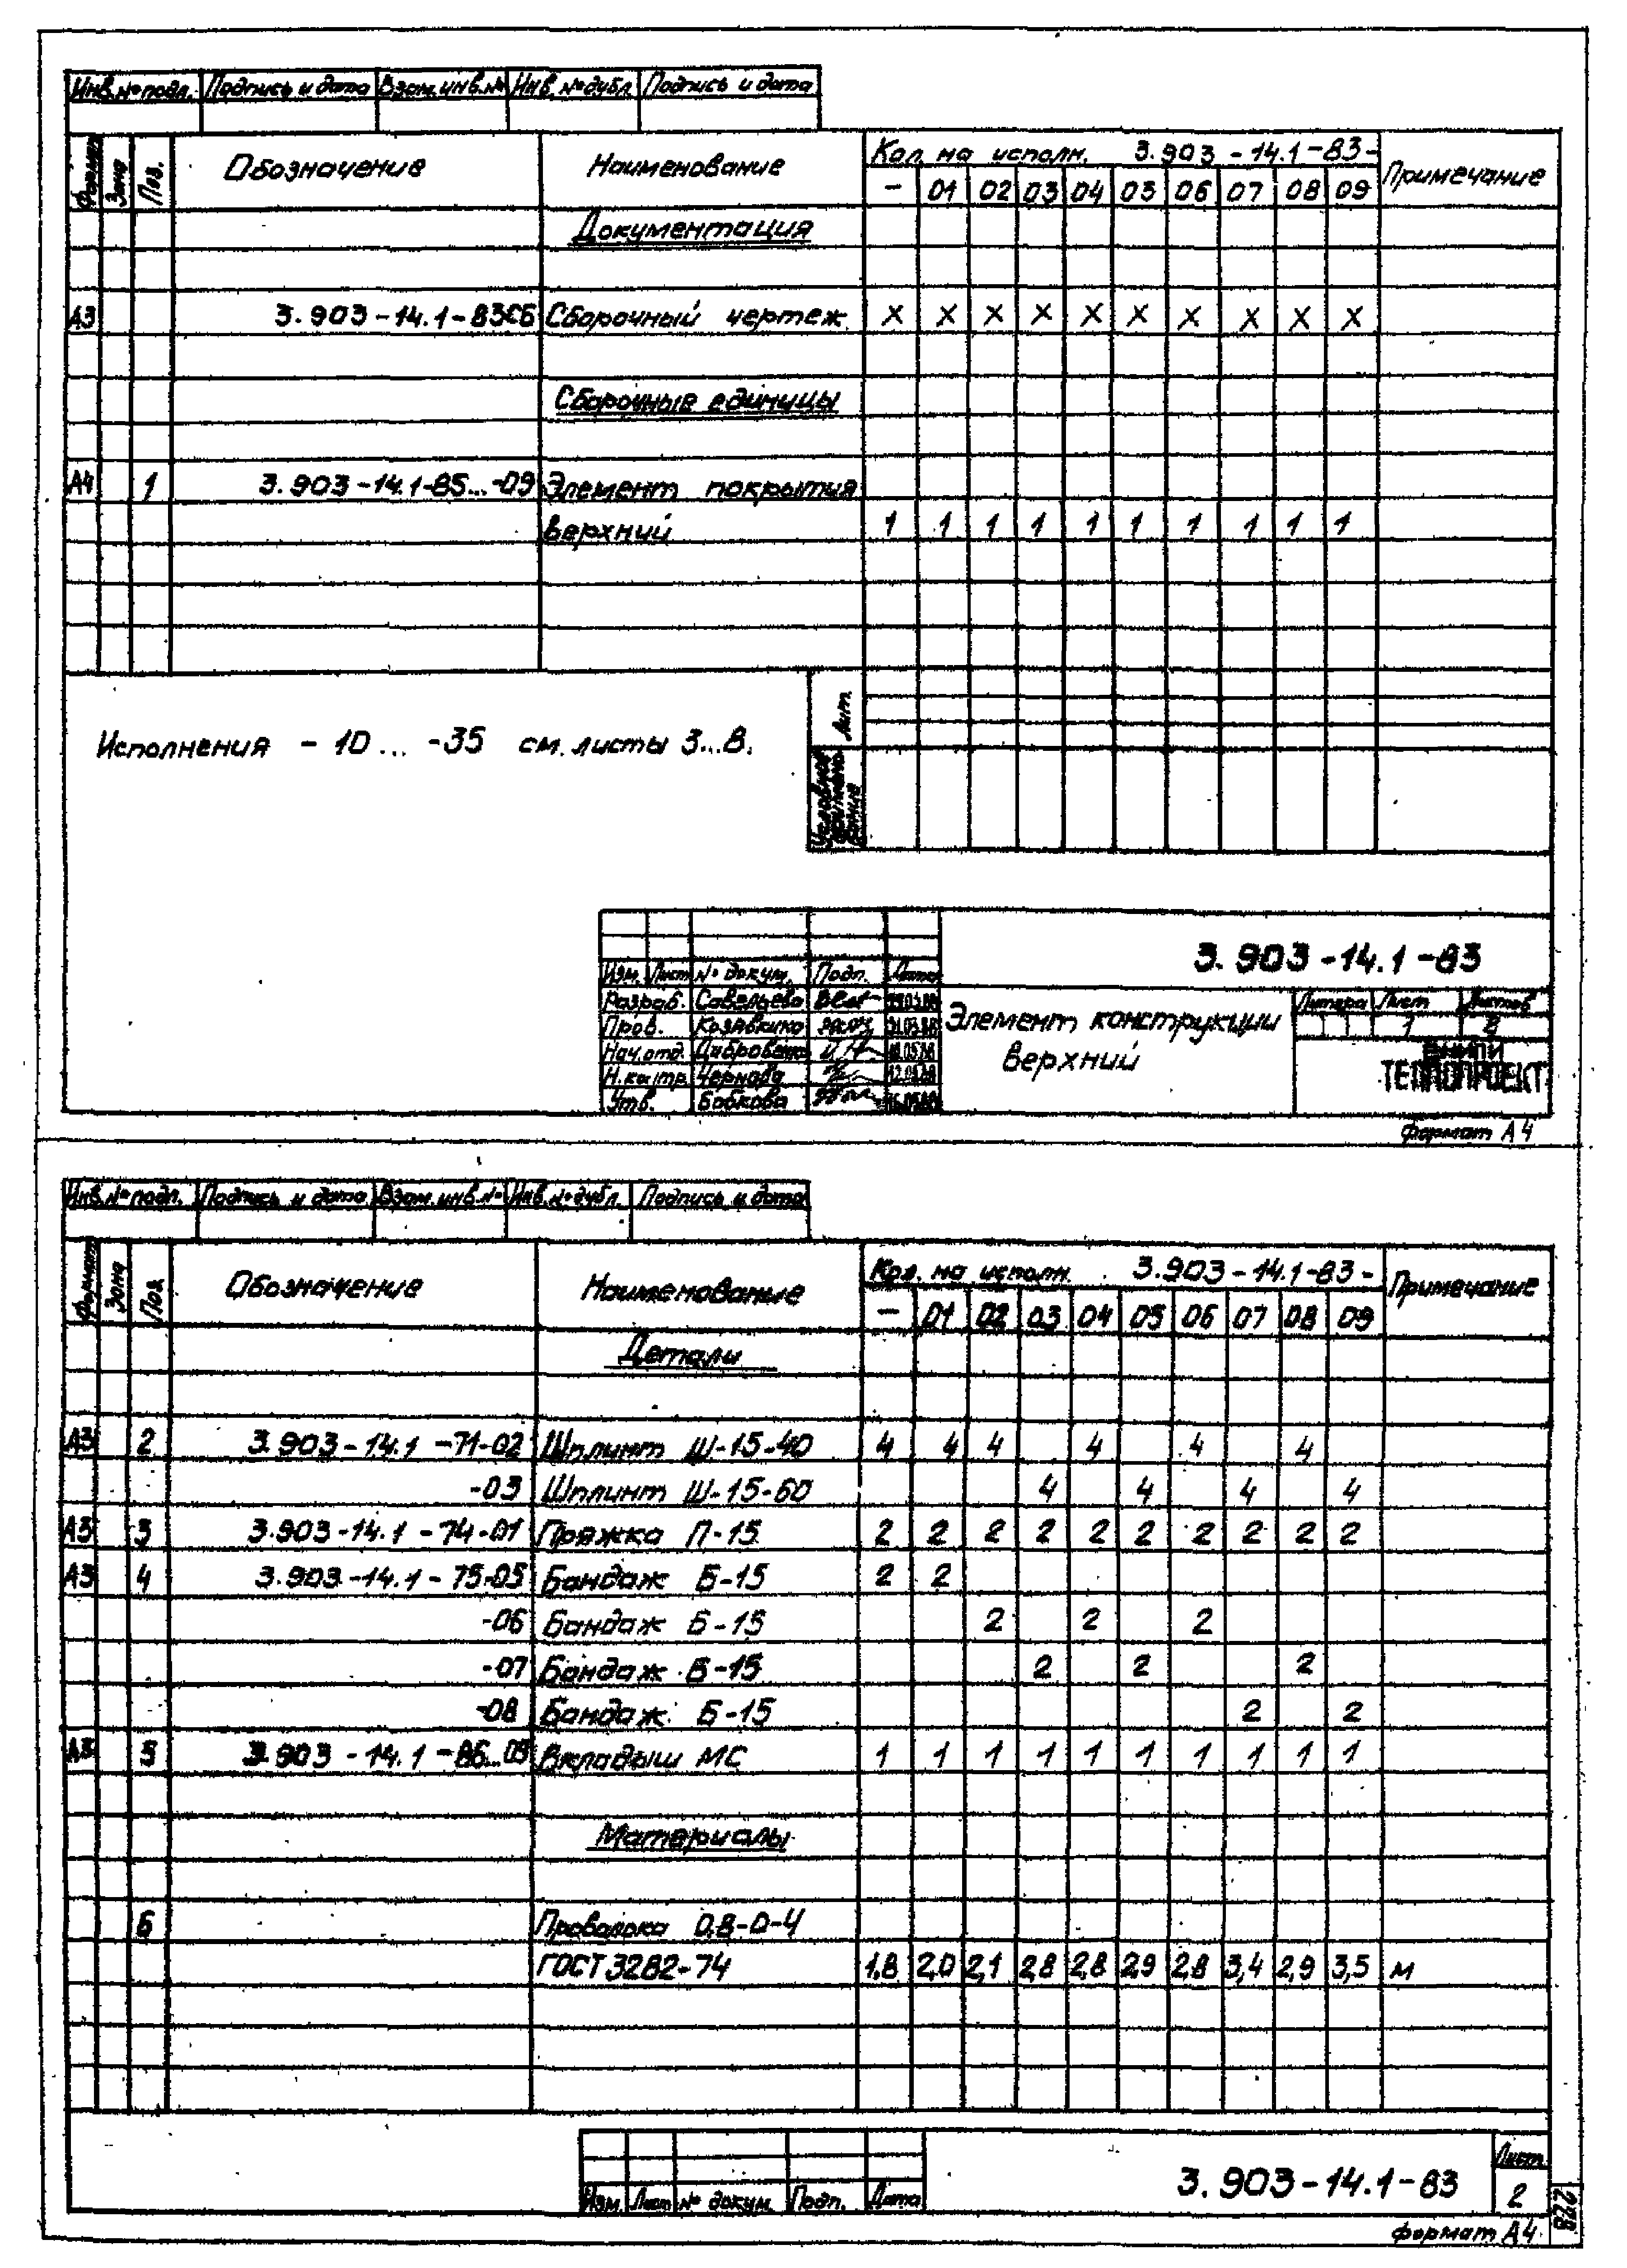 Инв.№ подл. Подпись и дата Взам.инв.№ Инв.№ дубл. Подпись и дата
Формат Зона Поз. Обозначение Наименование Кол. на исполн. 3.903-14.1-83- Примечание
- 01 02 03 04 05 06 07 08 09
Документация
А3 3.903-14.1-83СБ Сборочный чертеж X X X X X X X X X X
Сборочные единицы
А4 1 3.903-14.1-85...-09 Элемент покрытия
верхний 1 1 1 1 1 1 1 1 1 1
Лит.
Исполнения -10... -35 см. листы 3...8.
Условное
3.903-14.1-83
Изм. Лист № докум. Подп. Дата
Разраб. Савельева
Элемент конструкции
верхний
Литера Лист Листов
Пров. Козявкина 1 8
Нач.отд.
Н.контр. Чернова
Утв. Бобкова
ВНИПИ
ТЕПЛОПРОЕКТ
Формат А4
Инв.№ подл. Подпись и дата Взам.инв.№ Инв.№ дубл. Подпись и дата
Формат Зона Поз. Обозначение Наименование Кол. на исполн. 3.903-14.1-83- Примечание
- 01 02 03 04 05 06 07 08 09
Детали
А3 2 3.903-14.1-71-02 Шплинт Ш-15-40 4 4 4 4 4 4
-03 Шплинт Ш-15-60 4 4 4 4
А3 3 3.903-14.1-74-01 Пряжка П-15 2 2 2 2 2 2 2 2 2 2
А3 4 3.903-14.1-75-05 Бандаж Б-15 2 2
-06 Бандаж Б-15 2 2 2
-07 Бандаж Б-15 2 2 2
-08 Бандаж Б-15 2 2
А3 5 3.903-14.1-86...09 Вкладыш МС 1 1 1 1 1 1 1 1 1 1
Материалы
6 Проволока 0,8-О-4
ГОСТ 3282-74 1,8 2,0 2,1 2,8 2,8 2,9 2,8 3,4 2,9 3,5 м
3.903-14.1-83
Лист
2
Изм. Лист № докум. Подп. Дата
228
формат А4